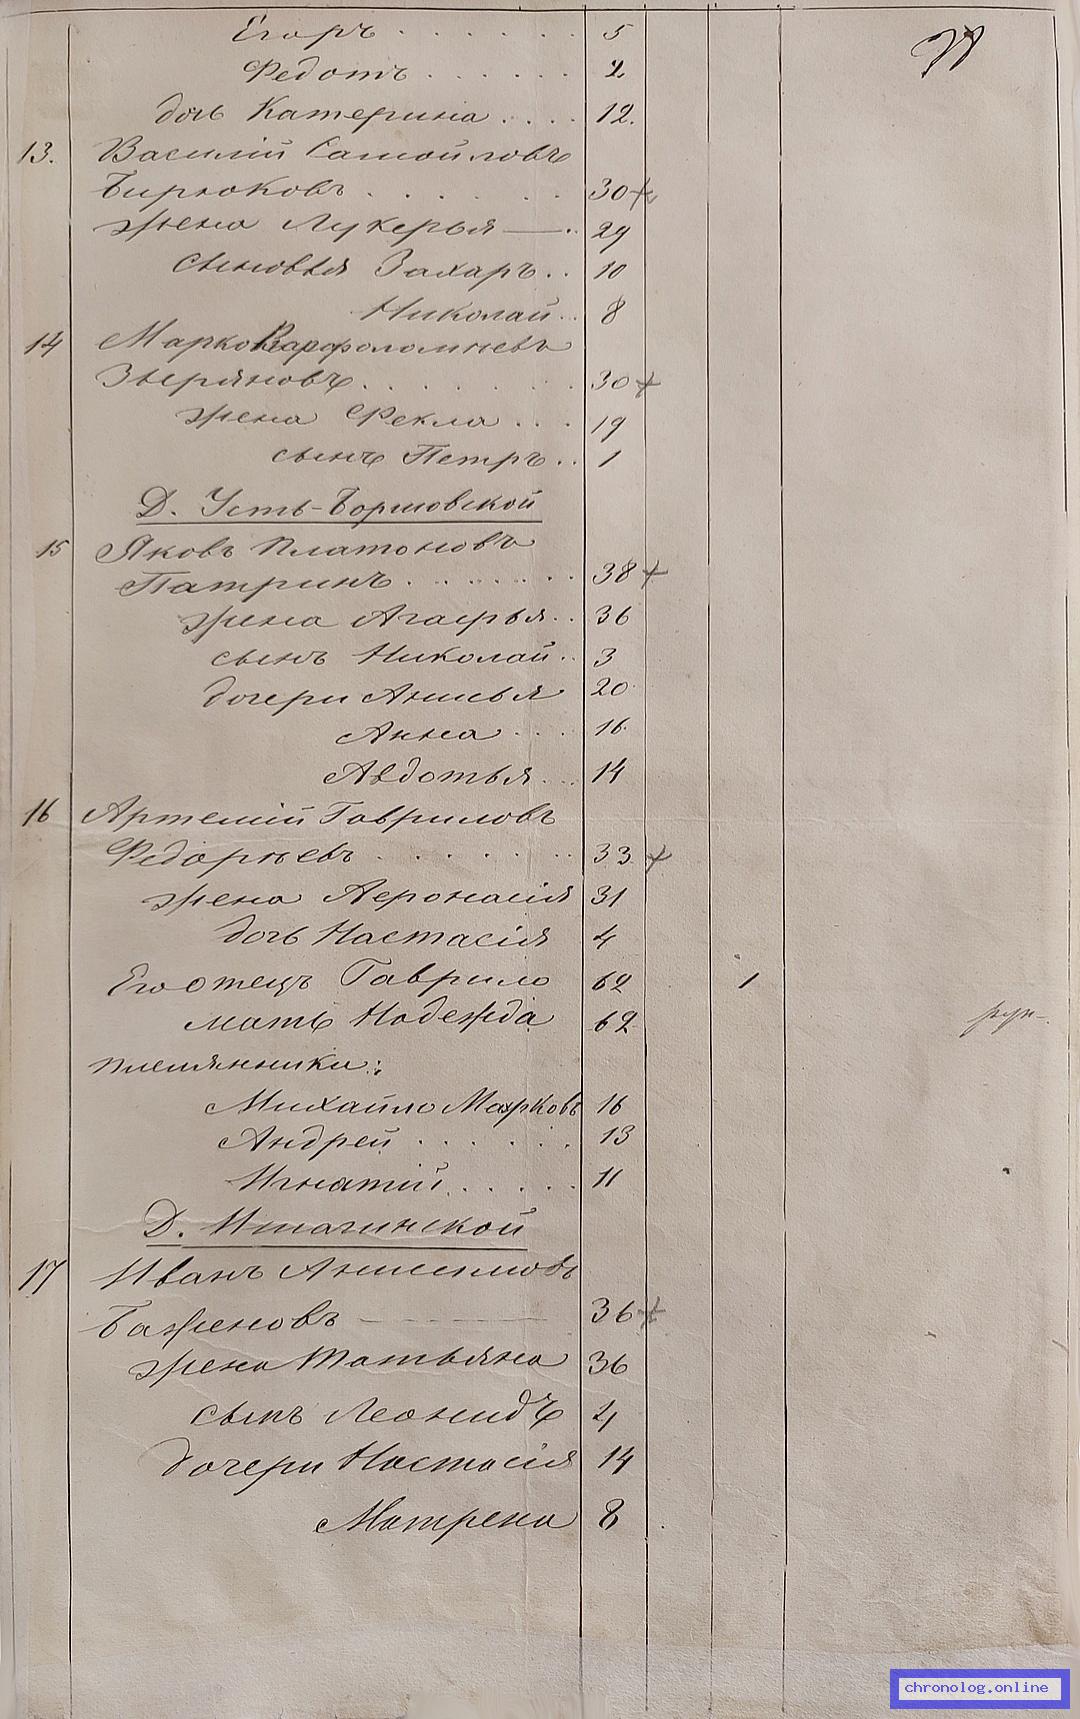 Егоръ . . . . . . 5
Федотъ . . . . . . 2
дочь Катерина . . . . 12.
13. Василій Самойловъ
Бирюковъ . . . . . 30+
жена Лукерья —. 29
сыновья Захаръ . . 10
Николай . . 8
14 Марко Варфоломѣевъ
Зверяновъ . . . . . . 30+
жена Фекла . . . 19
сынъ Петръ . . 1
Д. Усть-Бормовской
15 Яковъ Платоновъ
Патринъ . . . . . . . 38+
жена Агафья . . 36
сынъ Николай . . 3
дочери Анисья 20
Анна . . . 16
Авдотья . . . 14
16 Артемій Гавриловъ
Федорѣевъ . . . . . . 33+
жена Афонасія 31
дочь Настасія 4
Его отецъ Гаврило 62 1
мать Надежда 62
племянники:
Михайло Марковъ 16
Андрей . . . . . . 13
Игнатій . . . . . 11
Д. Итагинской
17 Иванъ Анисимовъ
Баженовъ - - - - - 36+
жена Татьяна 36
сынъ Леонидъ 4
дочери Настасія 14
Матрена 8
chronolog.online